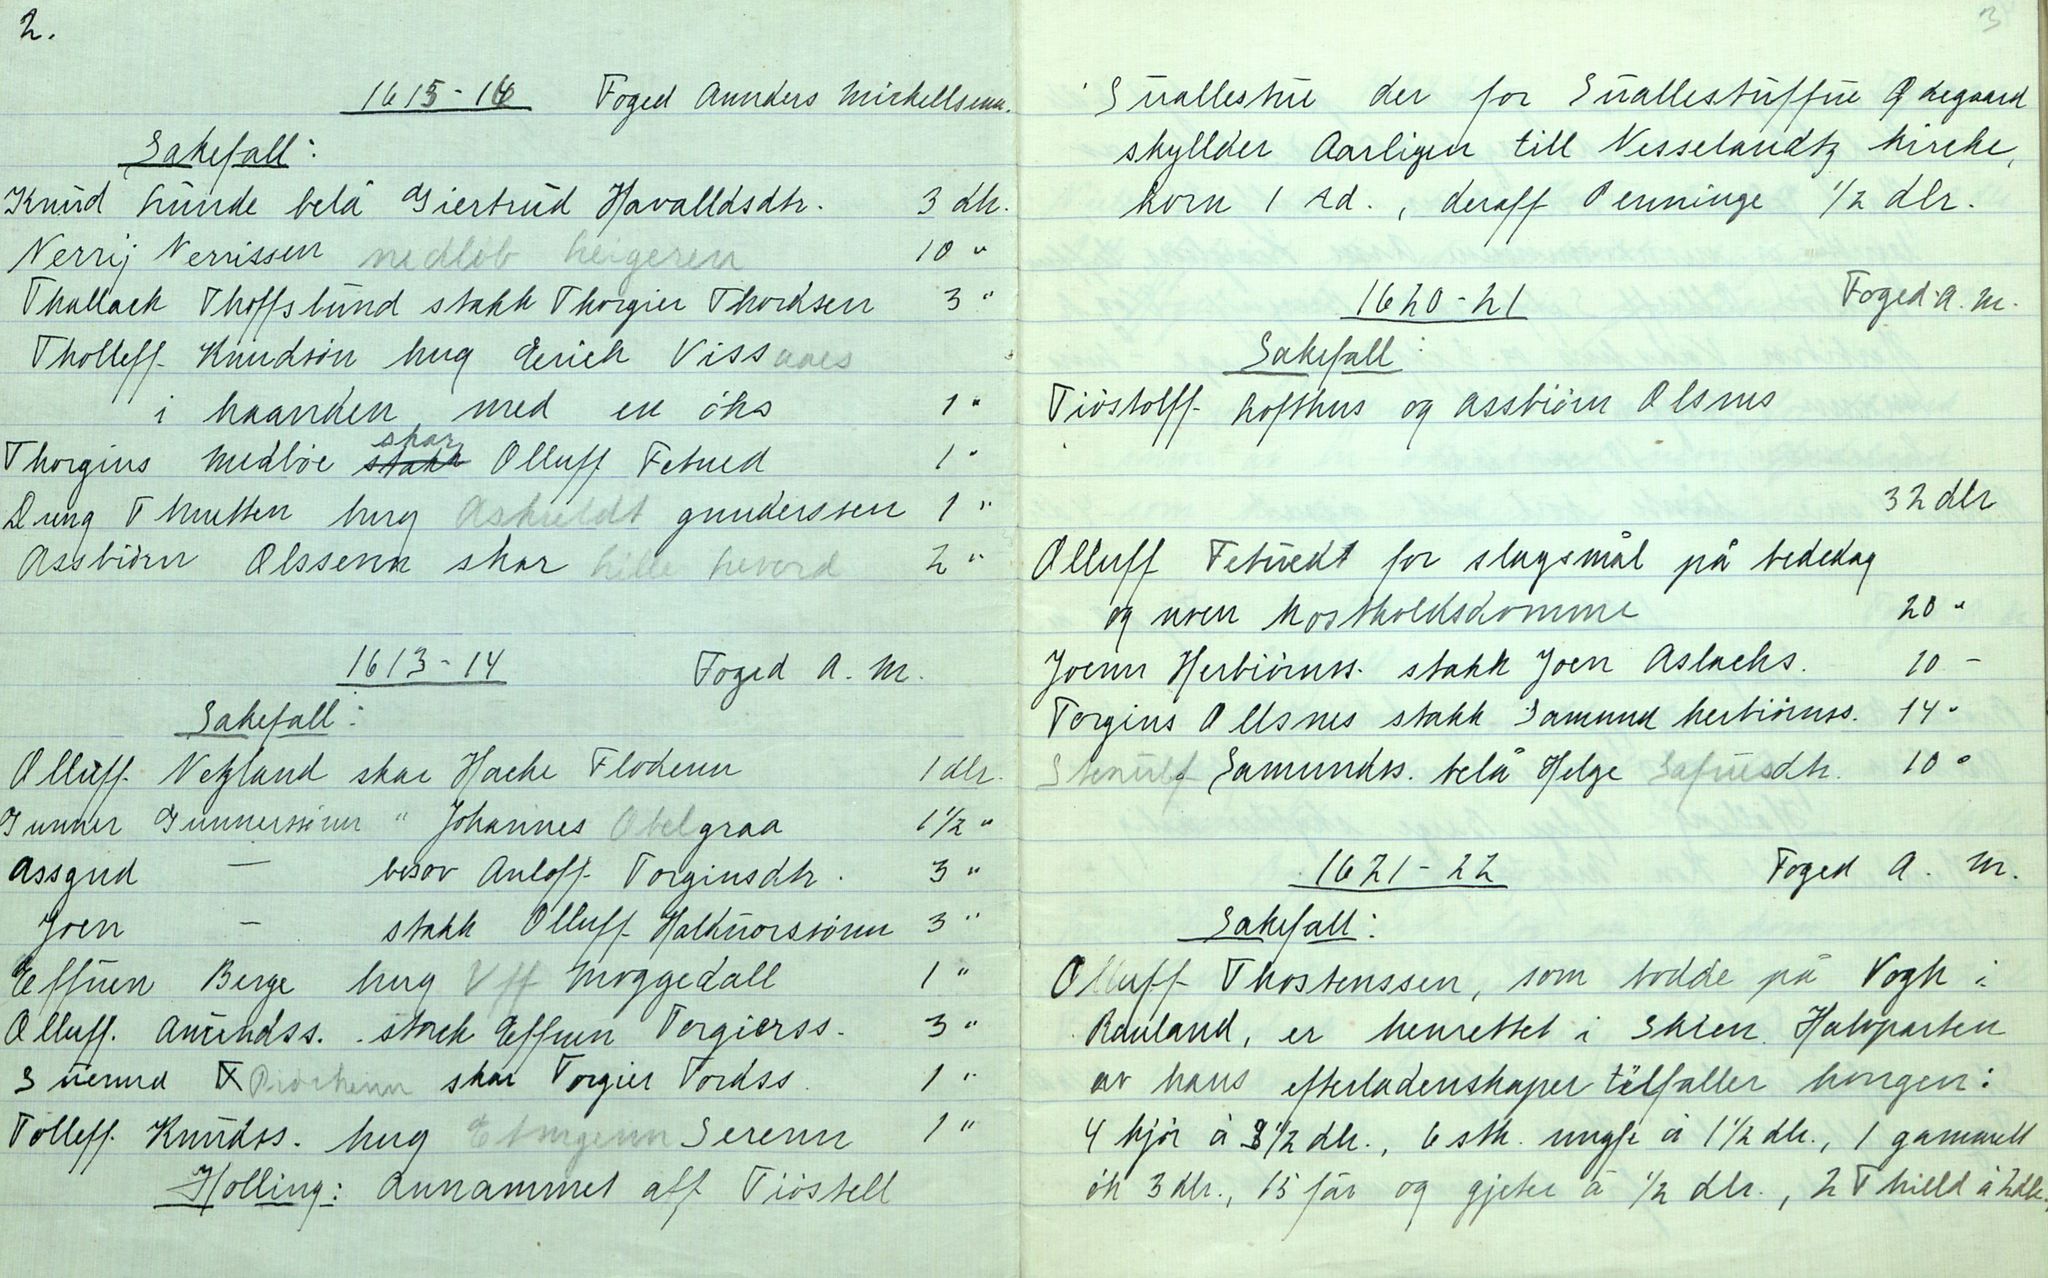 2.
1615-16 Foged Annders Mickellsenn.
Sakefall:
Knud Lunde belå Giertrud Havalldsdtr. 3 dlr.
Nerrij Nerrissen nedlob heigeren 10 "
Thallack Thoffslund stakk Thorgier Thordsen 3 "
Tholleff Knudsön hug Eerick Vissaaes
i haanden med en öks 1 "
Thorgius Medböe skar Olluff Fetued 1 "
Dung Thmetten hug Askuldt gunderssen 1 "
Assbiörn Olssenn skar hille hevord 2 "
1613-14 Foged A. M.
Sakefall:
Olluff Netzland skar Hacke Flodenn 1 dlr.
Gunner Gunnerssönn " Johannes Obelgraa 1 1/2 "
Assgud — besov Anloff Torginsdtr. 3 "
Joen — stakk Olluff Halkuorssönn 3 "
Effuen Berge hug Uff Moggedall 1 "
Olluff Amundss. stack Effuen Torgierss. 3 "
Suennd skar Torgier Tordss. 1 "
Tolleff Knudss. hug Serenn 1 "
Holling: Annammet aff Tiöstell
3
Suallestue der for Suallestuffue Ødegaard
skyllder Aarligen till Nesselandtz kircke,
korn 1 td., deraff Penninge 1/2 dlr.
1620-21 Foged A. M.
Sakefall:
Tiöstolff Lofthus og Assbiörn Olsnes
32 dlr
Olluff Fetuedt for slagsmål på bededag
og noen kostholdsdomme 20 "
Joenn Herbiörnss. stakk Joen Aslacks. 10 –
Torgius Ollsnes stakk Samund herbiörnss. 14 "
Stenulf Samundss. belå Helge Safuesdtr. 10 "
1621-22 Foged A. M.
Sakefall:
Olluff Thostenssen, som bodde på Vogh i
Rauland, er henrettet i Skien. Halvparten
av hans efterladenskaper tilfaller kongen:
4 kjör à 3 1/2 dlr., 6 stk. ungfe à 1 1/2 dlr., 1 gammell
ök 3 dlr., 15 får og gjeter à 1/2 dlr., 2 Thilld à 2 dlr.,